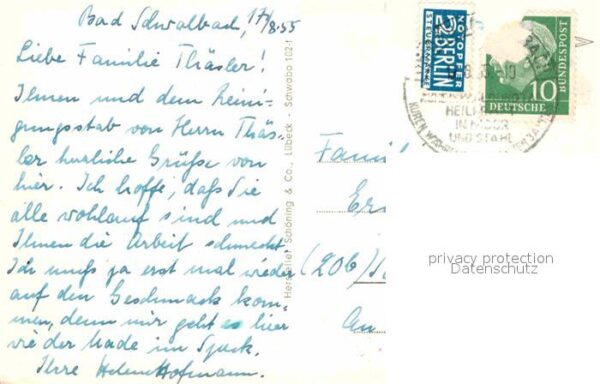 Bad Schwalbach, 17/8.55
Liebe Familie Thäsler!
Ihnen und dem Reini-
gungsstab von Herrn Thäs-
ler herzliche Grüße von
hier. Ich hoffe, daß Sie
alle wohlauf sind und
Ihnen die Arbeit schmeckt
Ich muß ja erst mal wieder
auf den Geschmack kom-
men, denn mir geht es hier
wie der Made im Speck.
Ihre Helene Hofmann.
Hersteller Schöning & Co., Lübeck - Schwaba 102
NOTOPFER
2 BERLIN
STEUERMARKE
10
DEUTSCHE
BUNDESPOST
HEIL
IN MOOR
UND STAHL
Fami
(20b)
privacy protection
Datenschutz